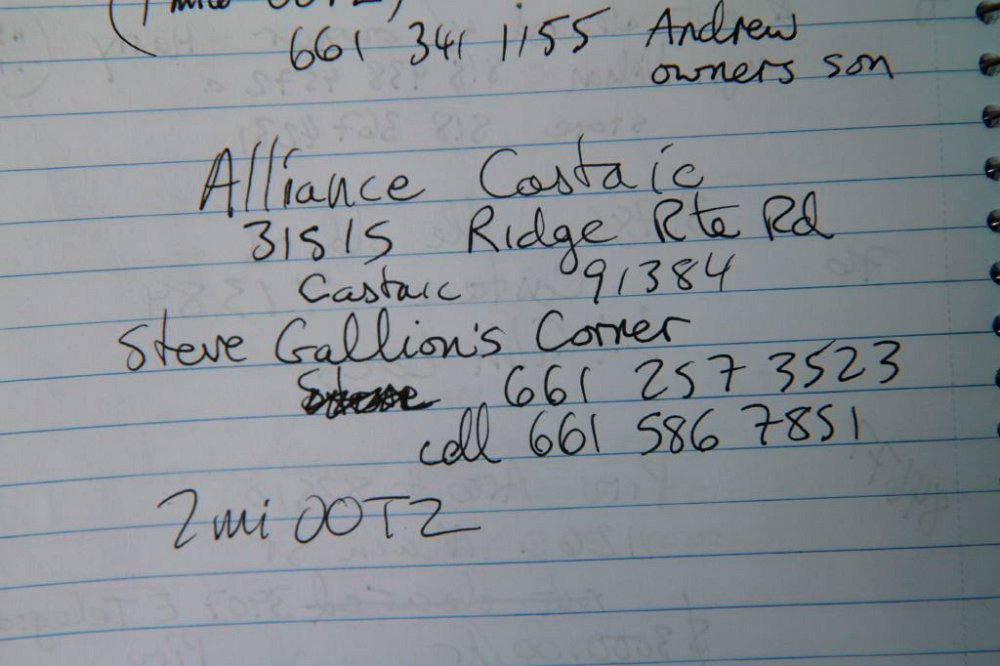 661 341 1155 Andrew
owners son
Alliance Castaic
31515 Ridge Rte Rd
Castaic 91384
Steve Gallion's Corner
661 257 3523
cell 661 586 7851
2mi OOTZ